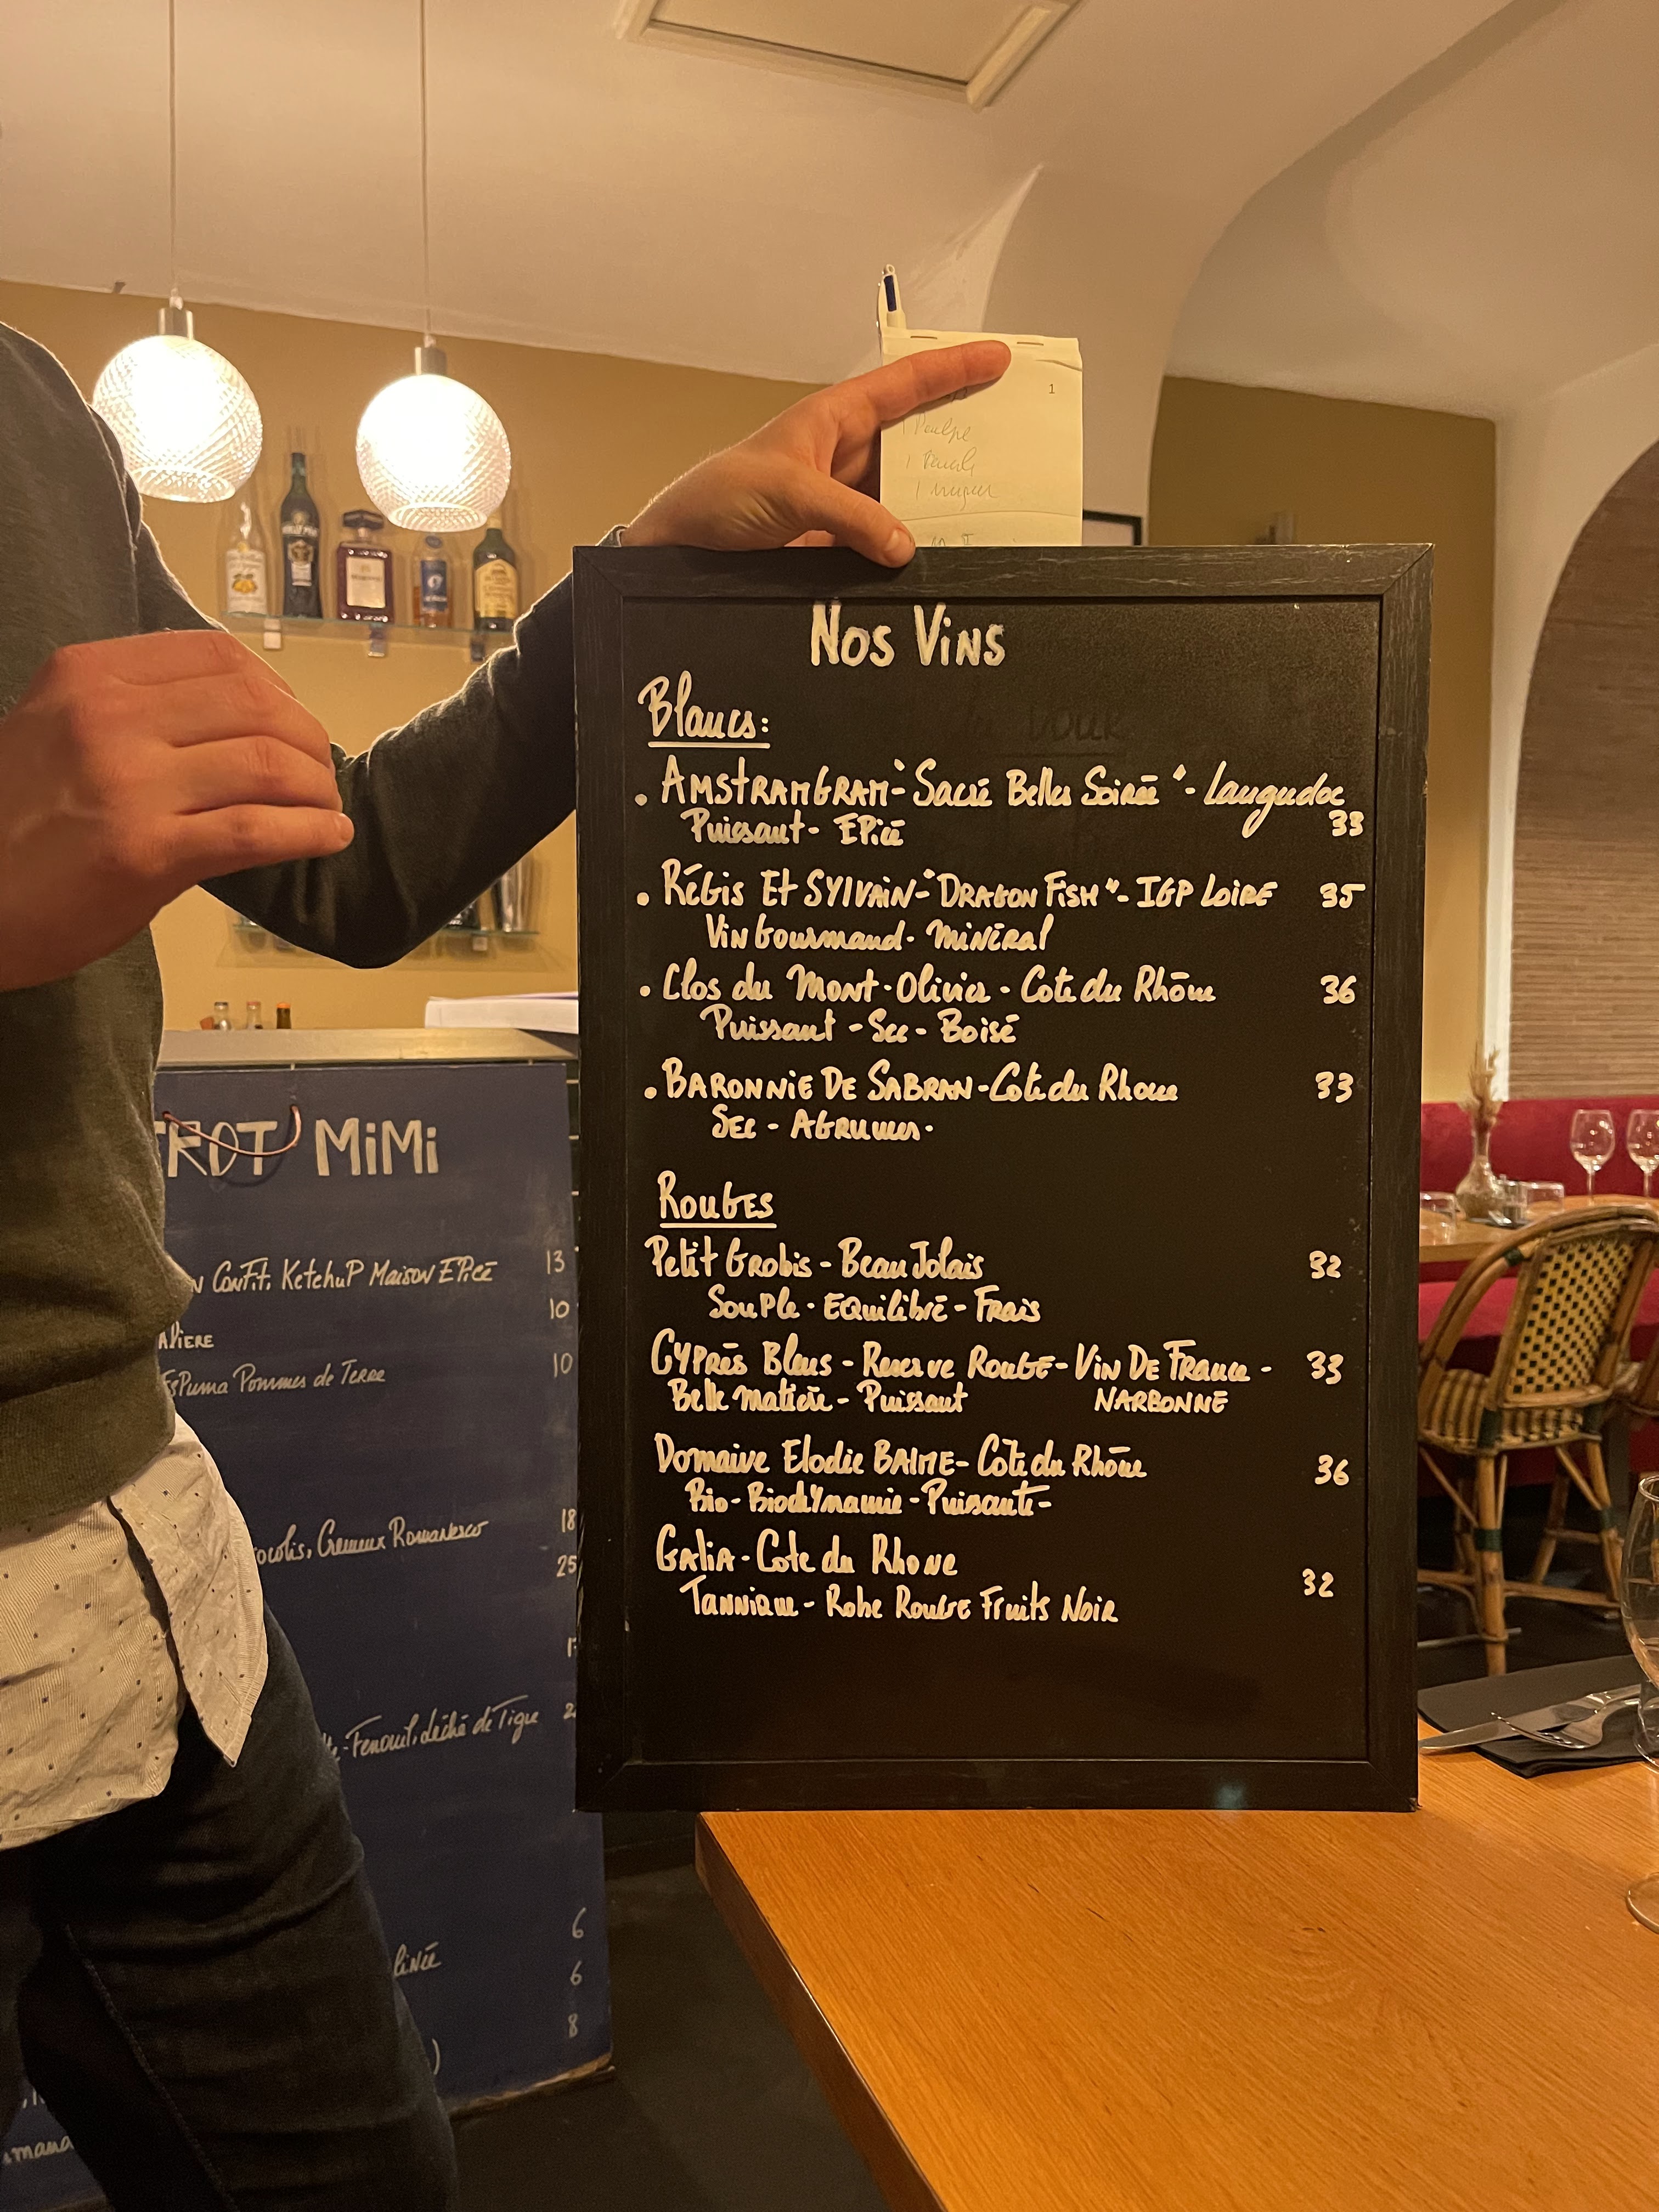 1
1 Poulpe
Nos Vins
Blancs:
. AMSTRAMGRAM - "Sacré Belles Soirée" - Languedoc
33
Puissant - EPicé
. Régis Et SYLVAIN - "DRAGON FiSH" - IGP LOiRE 35
Vin Gourmand - Minéral
. Clos du Mont-Olivier - Cote du Rhône 36
Puissant - Sec - Boisé
. BARONNiE DE SABRAN - Cote du Rhone 33
SEC - AGRUMES.
ROUGES
Petit Grobis - BeauJolais 32
SouPle - EQuilibré - Frais
CYPRès Bleus - Reserve ROUGE - ViN DE France - 33
Belle Matière - Puissant NARBONNE
Domaine Elodie BALME - Côte du Rhône 36
Bio - BiodYnamie - Puissante -
GALiA - Cote du Rhone
32
TanniQue - Robe RouGE Fruits NoiR
TROT MiMi
N ConFit, KetchuP Maison EPicé 13
10
ALiERE
EsPuma Pommes de Terre 10
18
rocolis, Cremeux Romanesco
25
-Fenouil, Lèché de Tigre 2
6
linée
6
8
)